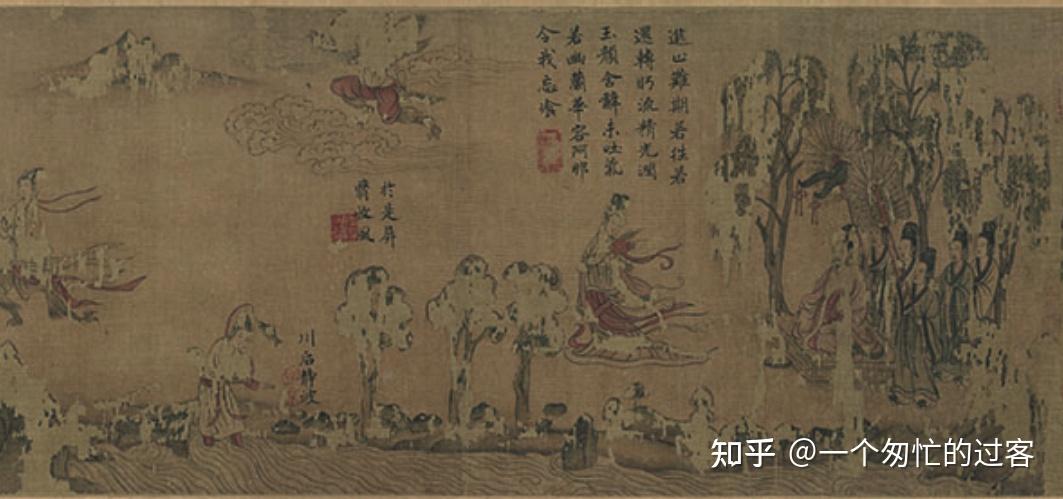 進止難期若往若
還轉眄流精光潤
玉顏含辭未吐氣
若幽蘭華容阿那
令我忘飡
於是屏
翳收風
川后靜波
知乎 @一个匆忙的过客